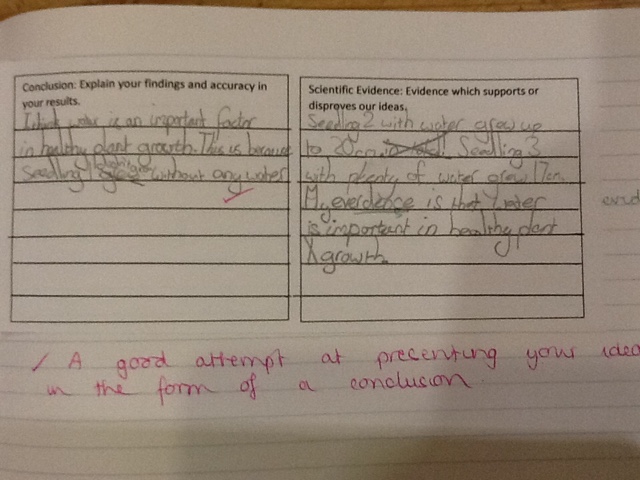 Conclusion: Explain your findings and accuracy in
your results.
I think water is an important factor
in healthy plant growth. This is because
Seedling without any water
Scientific Evidence: Evidence which supports or
disproves our ideas.
Seedling 2 with water grew up
to 20cm Seedling 3
with plenty of water grew 17cm
My everdence is that water
is important in healthy plant
growth
evid
/ A good attempt at presenting your idea
in the form of a conclusion.